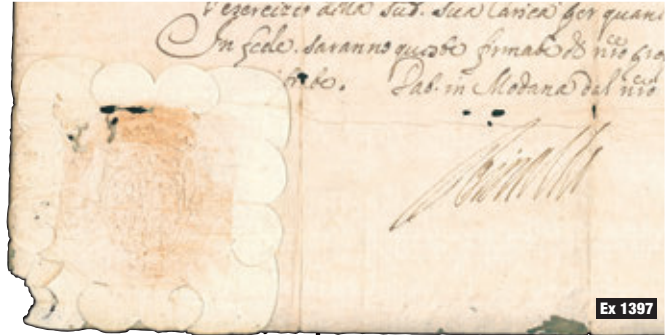 l'esercizio della sud. sua Carica per quan
In fede saranno queste firmate di nro pro
Dat. in Modana dal nro
Rinaldo
Ex 1397